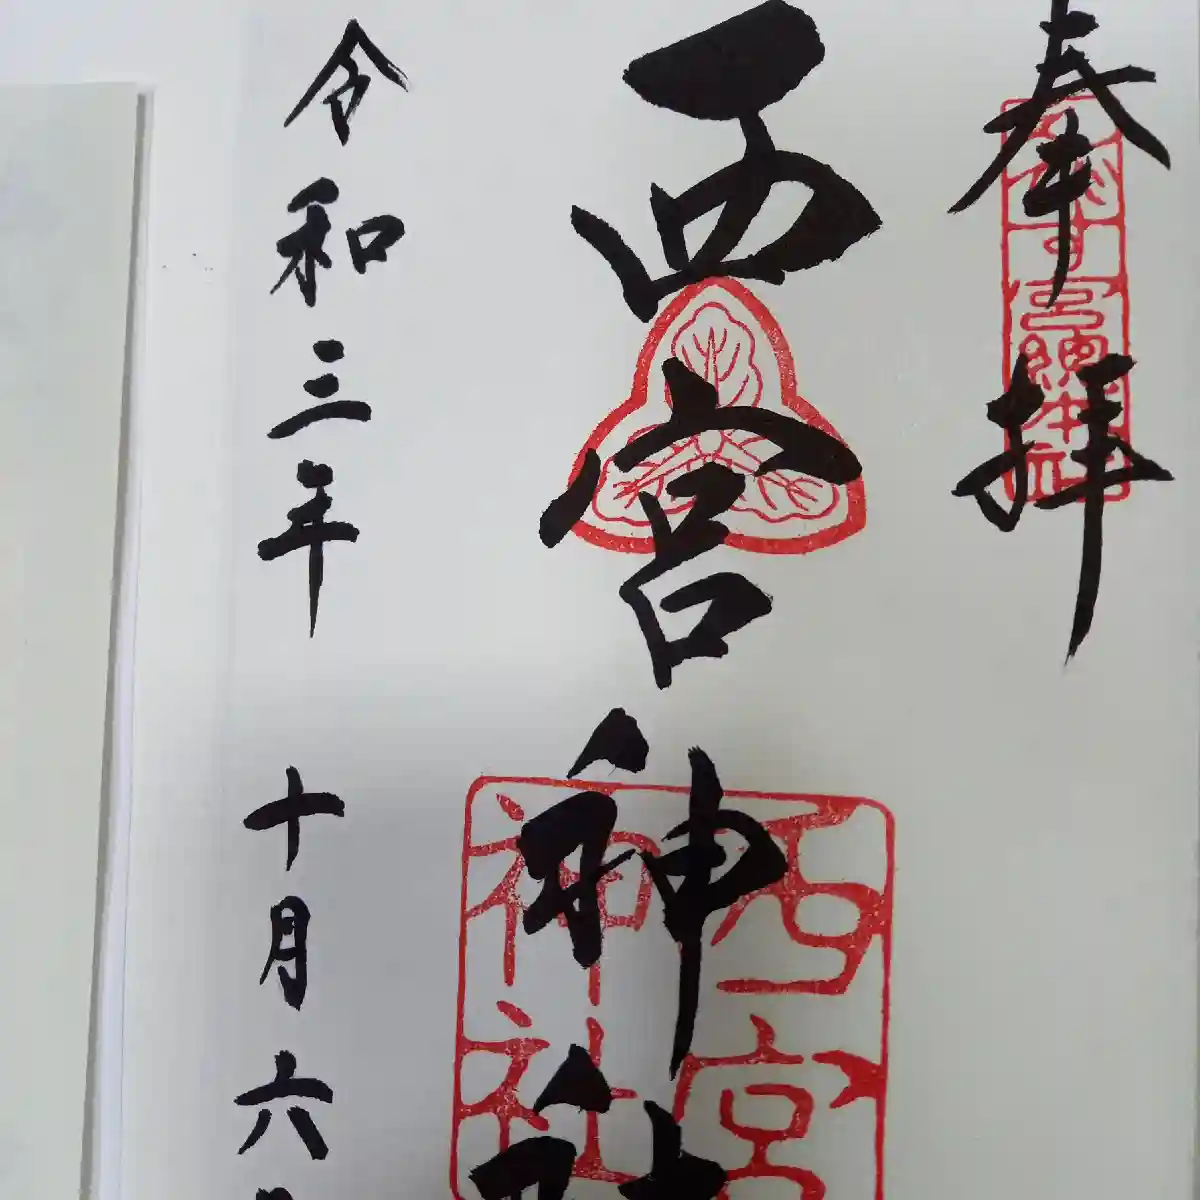 奉拝
西宮神社
令和三年 十月六日
西宮
神社